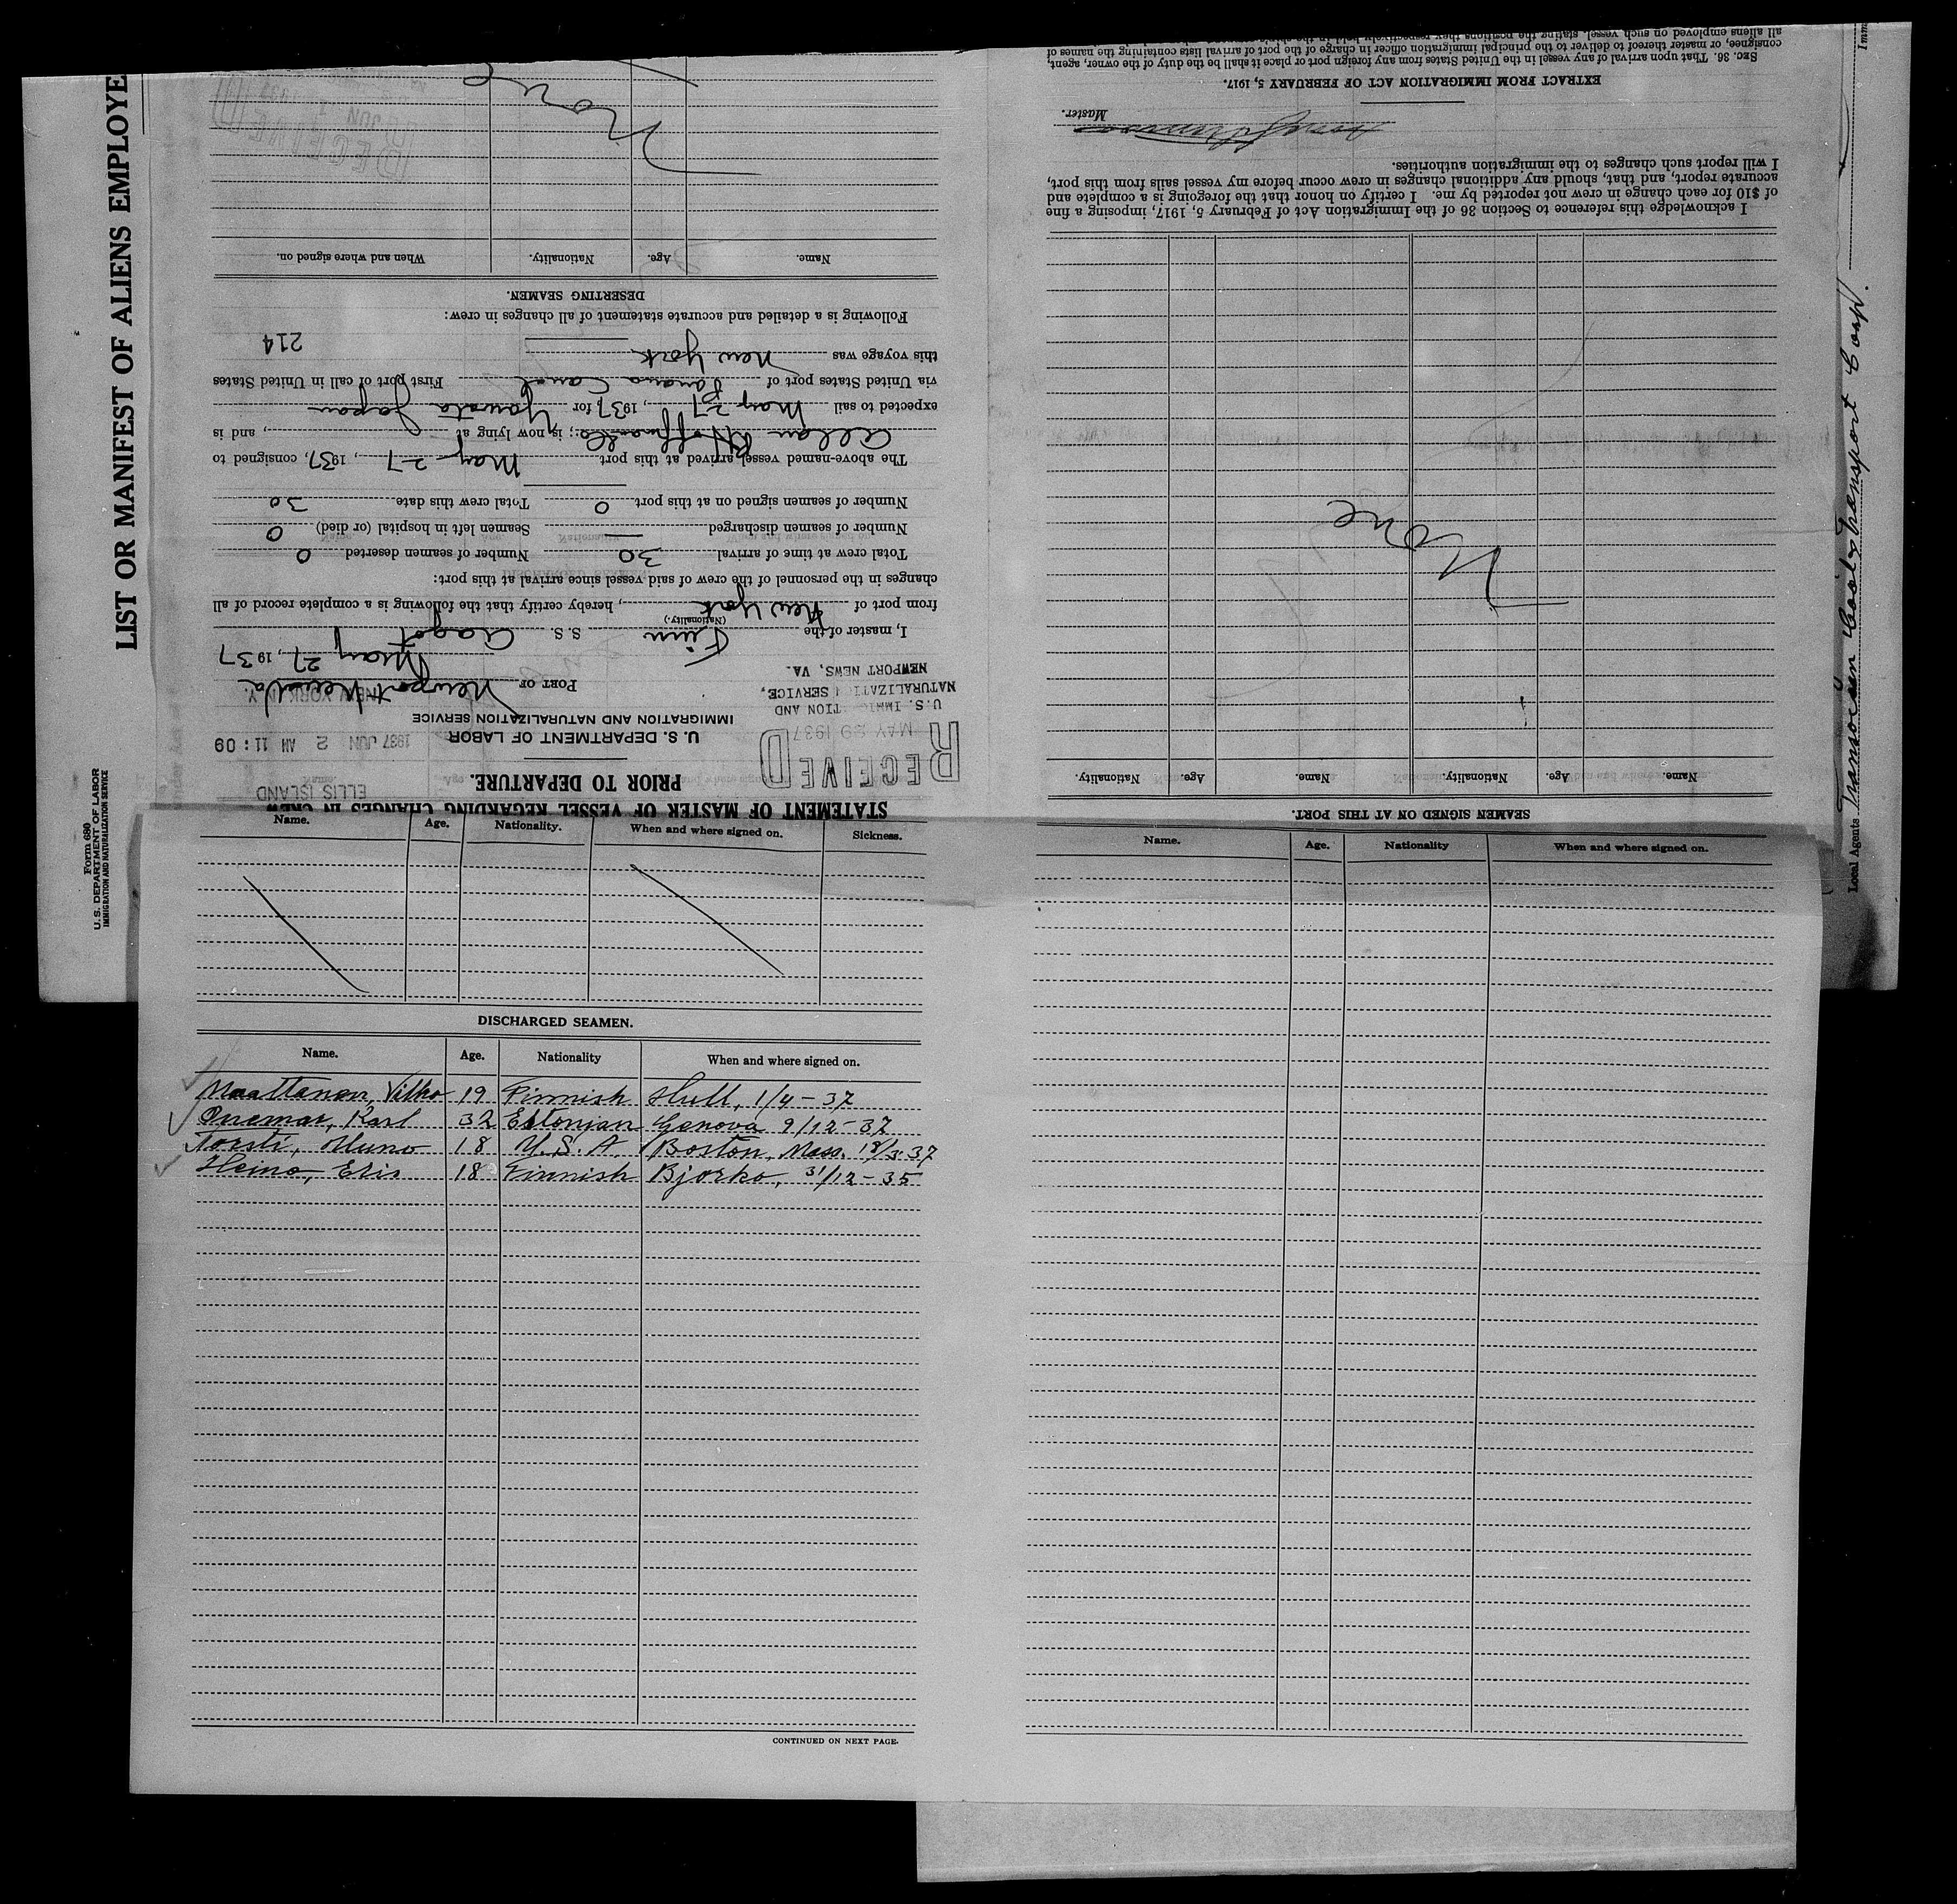 LIST OR MANIFEST OF ALIENS EMPLOYE
Form 680
U.S. DEPARTMENT OF LABOR
IMMIGRATION AND NATURALIZATION SERVICE
STATEMENT OF MASTER OF VESSEL REGARDING CHANGES IN CREW
PRIOR TO DEPARTURE.
ELLIS ISLAND
U. S. DEPARTMENT OF LABOR
1937 JUN 2 AM 11:09
IMMIGRATION AND NATURALIZATION SERVICE
RECEIVED
MAY 29 1937
U.S. IMMI TION AND
NATURALIZATION SERVICE,
NEWPORT NEWS, VA.
NEW YORK N.Y.
PORT OF Newport News Va
May 27, 1937
I, master of the Finn S. S. Aagot
(Nationality.)
from port of New York, hereby certify that the following is a complete record of all
changes in the personnel of the crew of said vessel since arrival at this port:
Total crew at time of arrival 30 Number of seamen deserted 0
Number of seamen discharged — Seamen left in hospital (or died) 0
Number of seamen signed on at this port 0 Total crew this date 30
The above-named vessel arrived at this port May 27, 1937, consigned to
; is now lying at , and is
expected to sail May 27, 1937, for Yawata Japan
via United States port of Panama Canal First port of call in United States
this voyage was New York
214
Following is a detailed and accurate statement of all changes in crew:
DESERTING SEAMEN.
Name. Age. Nationality. When and where signed on.
None
RECEIVED
JUN
SEAMEN SIGNED ON AT THIS PORT.
Name. Age. Nationality. Name. Age. Nationality.
None
I acknowledge this reference to Section 36 of the Immigration Act of February 5, 1917, imposing a fine
of $10 for each change in crew not reported by me. I certify on honor that the foregoing is a complete and
accurate report, and that, should any additional changes in crew occur before my vessel sails from this port,
I will report such changes to the immigration authorities.
Master.
EXTRACT FROM IMMIGRATION ACT OF FEBRUARY 5, 1917.
SEC. 36. That upon arrival of any vessel in the United States from any foreign port or place it shall be the duty of the owner, agent,
consignee, or master thereof to deliver to the principal immigration officer in charge of the port of arrival lists containing the names of
all aliens employed on such vessel, stating the positions they respectively hold in the
Local Agents Transocean Coal & Transport Corp.
Imm
Name. Age. Nationality. When and where signed on. Sickness.
DISCHARGED SEAMEN.
Name. Age. Nationality When and where signed on.
Maattanen, Vilho 19 Finnish Hull, 1/4-37
Onemar, Karl 32 Estonian Genova 9/12-37
Torsti, Muno 18 U.S.A. Boston, Mass. 18/3-37
Heino, Eris 18 Finnish Bjorko, 31/12-35
CONTINUED ON NEXT PAGE.
Name. Age. Nationality When and where signed on.